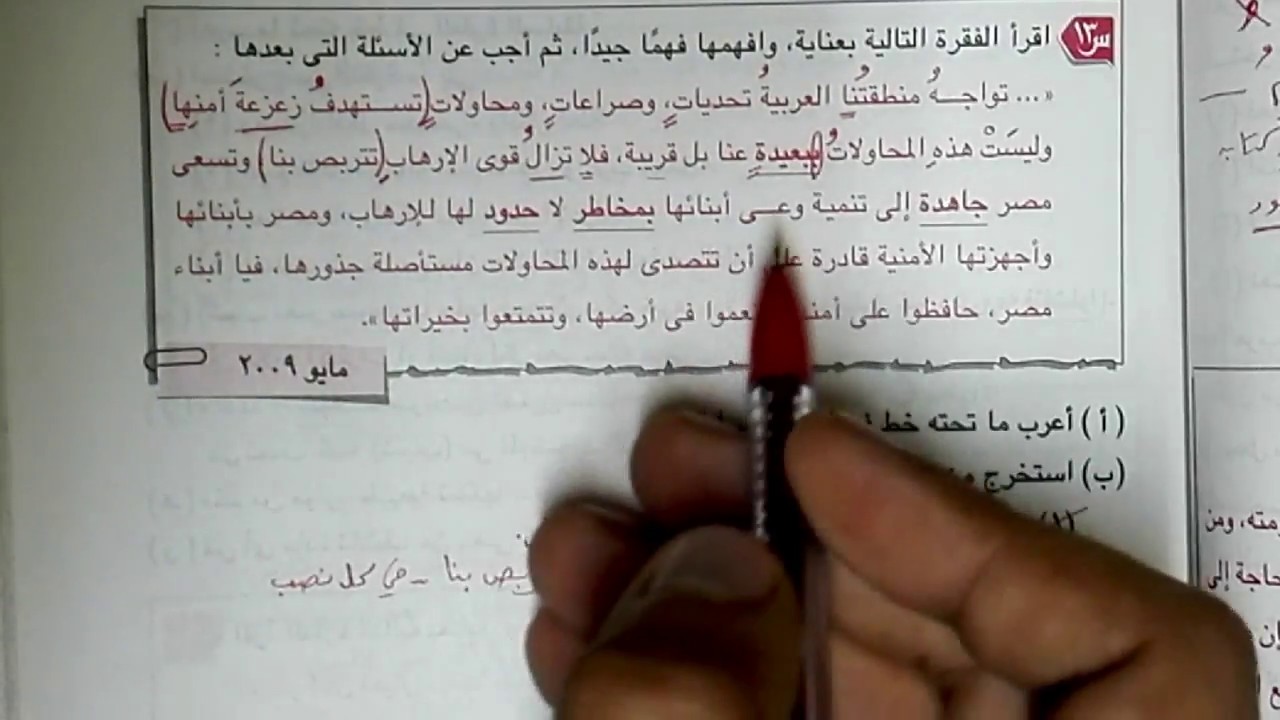 س١٣ اقرأ الفقرة التالية بعناية، وافهمها فهمًا جيدًا، ثم أجب عن الأسئلة التى بعدها :
«... تواجهُ منطقتُنا العربيةُ تحدياتٍ، وصراعاتٍ، ومحاولاتٍ (تستهدفُ زعزعةَ أمنِها)
وليسَتْ هذهِ المحاولاتُ ببعيدةٍ عنا بل قريبة، فلا تزالُ قوى الإرهابِ (تتربص بنا) وتسعى
مصر جاهدة إلى تنمية وعى أبنائها بمخاطر لا حدود لها للإرهاب، ومصر بأبنائها
وأجهزتها الأمنية قادرة على أن تتصدى لهذه المحاولات مستأصلة جذورها، فيا أبناء
مصر، حافظوا على فى أرضها، وتتمتعوا بخيراتها».
مايو ٢٠٠٩
(أ) أعرب ما تحته خط
(ب) استخرج
بنا - في محل نصب
كتابه
مته، ومن
حاجة إلى